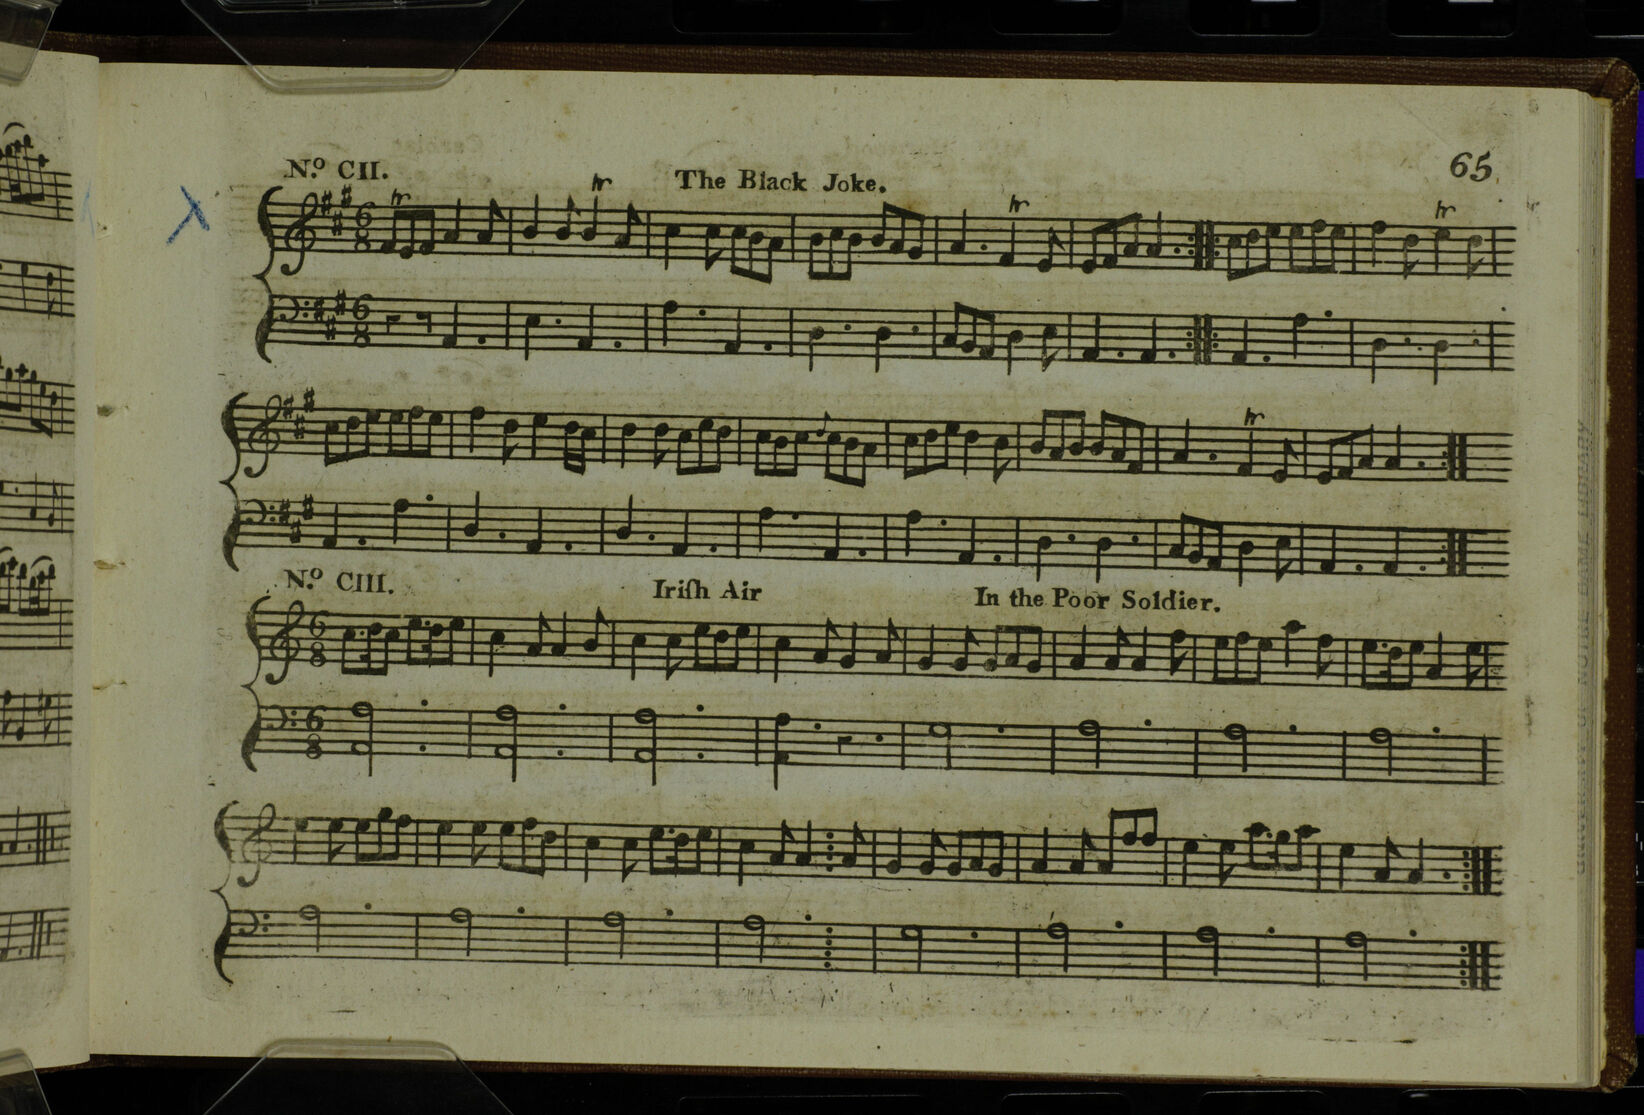 65
N.º CII. The Black Joke.
tr tr tr tr
6 8
6 8
tr
N.º CIII. Iriſh Air In the Poor Soldier.
6 8
6 8